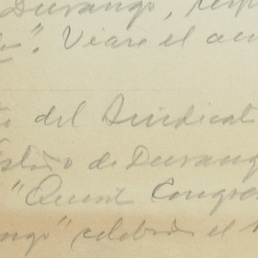 Durango,
Viaro el
del Sindicat
Estado de Durang
"Quint Congre
ngo" celebró el